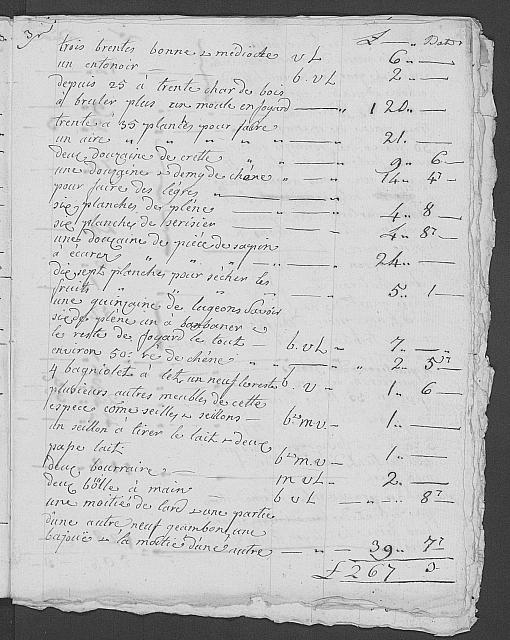 3
£ — Batz
trois brentes bonne & mediocre v L 6 —
un entonoir — b. v L 2 —
depuis 25 à trente char de bois
à bruler plus un moule en foyard — 120 —
trente à 35 plantes pour faire
un aire — 21 —
deux douzaine de crette — 9 6 —
une douzaine & demy de chêne — 14 4 —
pour faire des lègres —
six planches de plêne — 4 8 —
six planches de serisier — 4 8 —
une douzaine de pièce de sapin
à écarer — 24 —
dix sept planches pour sècher les
fruits — 5 1 —
une quinzaine de lugeons Savoir
six de plêne un à
le reste de foyard le tout — b. v L — 7 —
environ 50 de chêne — 2 5
4 bagniolet à let un neuf le reste b. v — 1 6
plusieurs autres meubles de cette
espece come seilles & seillons — b m. v — 1 —
un seillon à tirer le lait & deux
pape lait. b m. v — 1 —
deux bourraire — m v L — 2 —
deux bölle à main — b v L — 8
une moitié de lard & une partie
d'une autre neuf geambon, une
bajoue & la moitié d'une autre — 39 7
£ 267 5